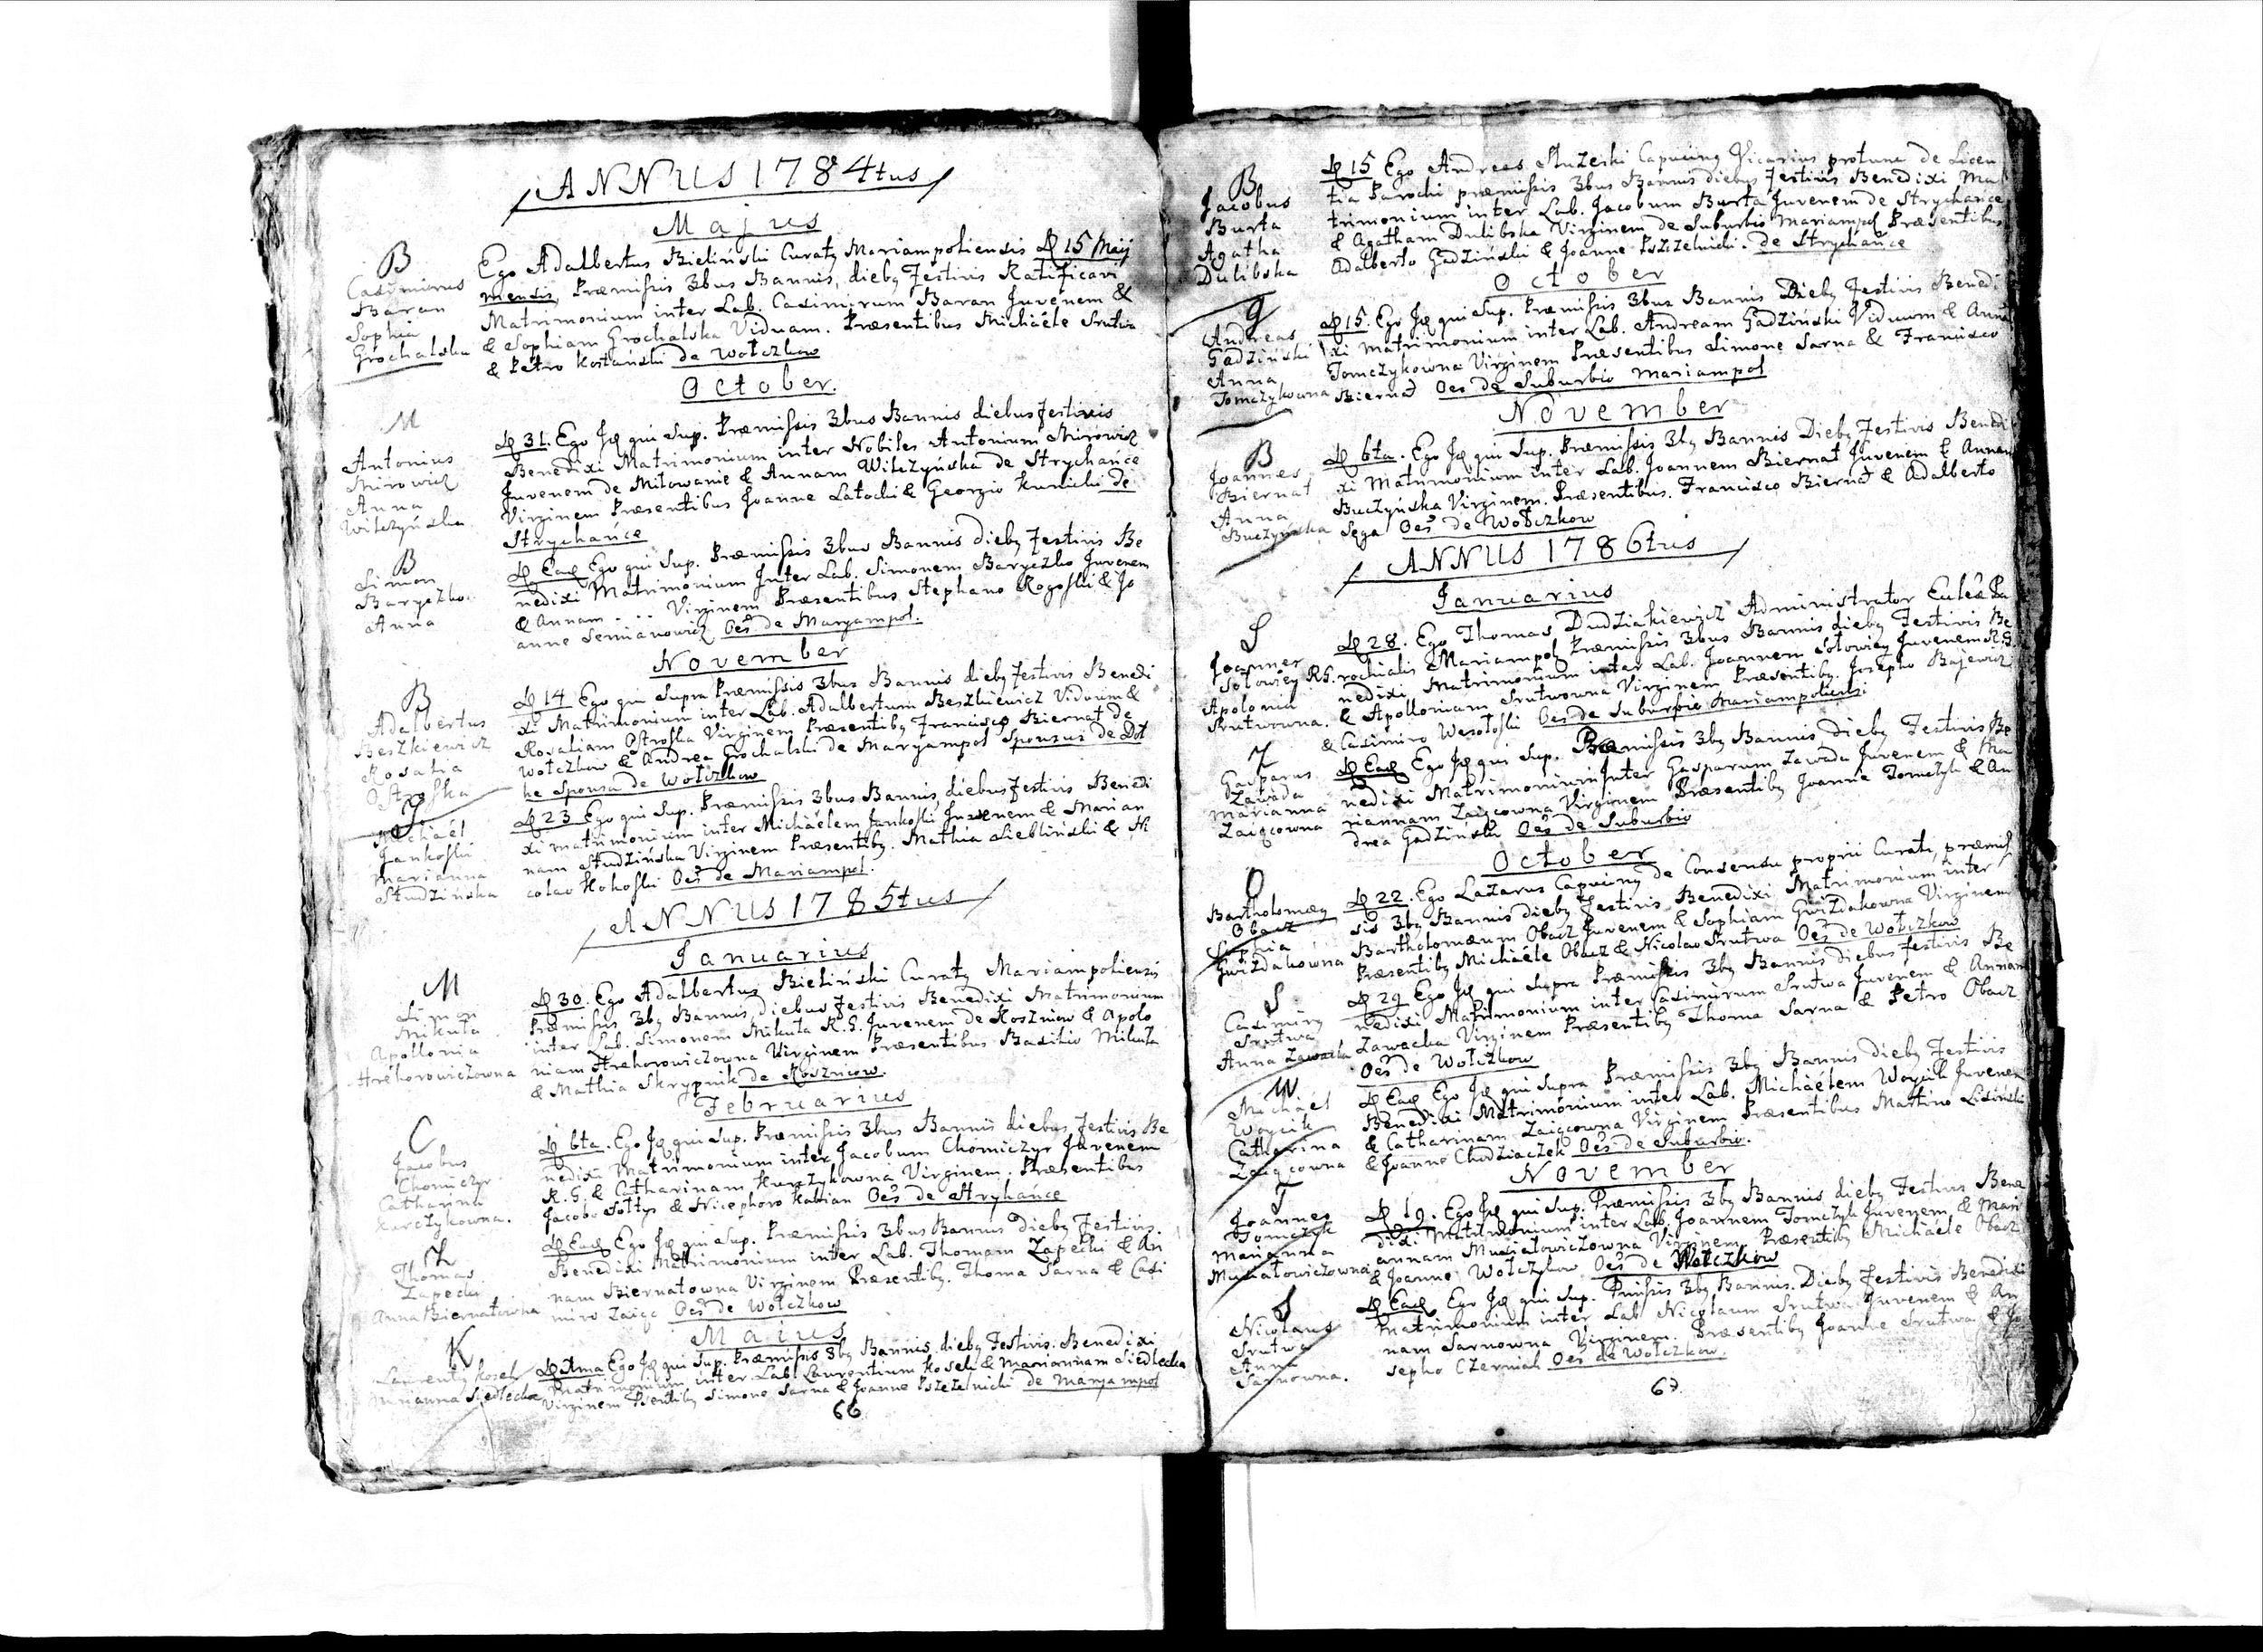 ANNUS 1784tus
Majus
B
Casimirus
Baran
Sophia
Grochalska
Ego Adalbertus Bieliński Curatg Mariampoliensis D 15 Maij
mensis, Præmissis 3bus Bannis, diebg Festivis Ratificavi
Matrimonium inter Lab. Casimirum Baran Juvenem &
& Sophiam Grochalska Viduam. Præsentibus Michaële Srutwa
& Petro Kostański de Wołczkow
October.
M
Antonius
Mirowicz
Anna
Wilczyńska
D 31. Ego Id qui Sup. Præmissis 3bus Bannis diebus festivis
Benedixi Matrimonium inter Nobiles Antonium Mirowicz
Juvenem de Miłowanie & Annam Wilczyńska de Strychańce
Virginem Præsentibus Joanne Latocki & Georgio Kunicki de
Strychańce
B
Simon
Baryczko
Anna
D Ead Ego qui Sup. Præmissis 3bus Bannis diebg Festivis Be
nedixi Matrimonium Inter Lab. Simonem Baryczko Juvenem
& Annam . . . Virginem Præsentibus Stephano Rogoski & Jo
anne Semianowicz Oes de Maryampol.
November
B
Adalbertus
Beszkiewicz
Rosalia
Ostroska
D 14 Ego qui Supra Præmissis 3bus Bannis diebg Festivis Benedi
xi Matrimonium inter Lab. Adalbertum Beszkiewicz Viduum &
Rosaliam Ostroska Virginem Præsentibg Francisco Biernat de
Wołczkow & Andrea Grochalski de Maryampol Sponsus de Dol
he Sponsa de Wołczkow
J
Michaël
Jankoski
Marianna
Studzińska
D 23 Ego qui Sup. Præmissis 3bus Bannis diebus Festivis Benedi
xi matrimonium inter Michaëlem Jankoski Juvenem & Marian
nam Studzińska Virginem Præsentibg. Mathia Siebliński & Ni
colao Kokoski Oes de Mariampol.
ANNUS 1785tus
Januarius
M
Simon
Mikuta
Apollonia
Hrehorowiczowna
D 30. Ego Adalbertus Bieliński Curatg Mariampoliensis
Præmissis 3bg Bannis diebus Festivis Benedixi Matrimonium
inter Lab. Simonem Mikuta R.G. Juvenem de Kosznow & Apolo
niam Hrehorowiczowna Virginem Præsentibus Basilio Mikuta
& Mathia Skrypnik de Kosznow.
Februarius
C
Jacobus
Chomiczyr
Catharina
Kurczykowna.
D 6ta. Ego Id qui Sup. Præmissis 3bus Bannis diebus Festivis Be
nedixi Matrimonium inter Jacobum Chomiczyr Juvenem
R.G. & Catharinam Kurczykowna Virginem. Præsentibus
Jacobo Sołtys & Nicephoro Kabian Oes de Strychańce
Z
Thomas
Zapecki
Anna Biernatowna
D Ead Ego Id qui Sup. Præmissis 3bus Bannis Diebg Festivis
Benedixi Matrimonium inter Lab. Thomam Zapecki & An
nam Biernatowna Virginem Præsentibg. Thoma Sarna & Casi
miro Zaiąc Oes de Wołczkow
Maius
K
Laurentg Kosek
Marianna Siedlecka
D Ima Ego Id qui Sup. Præmissis 3bg Bannis diebg Festivis. Benedixi
Matrimonium inter Lab. Laurentium Kosek & Mariannam Siedlecka
Virginem Psentibg Simone Sarna & Joanne Pszczelnicki de Maryampol
66
B
Jacobus
Burta
Agatha
Dulibska
D 15 Ego Andreas Capucing Vicarius protunc de Licen
tia Parochi præmissis 3bus Bannis diebus Festivis Benedixi Ma
trimonium inter Lab. Jacobum Burta Juvenem de Strychance
& Agatham Dulibska Virginem de Suburbio Mariampol Præsentibus
Adalberto Gadziński & Joanne Pszczelnicki. de Strychańce
October
G
Andreas
Gadziński
Anna
Tomczykowna
D 15. Ego Id qui Sup. Præmissis 3bus Bannis Diebg Festivis Benedi
xi Matrimonium inter Lab. Andream Gadziński Viduum & Annā
Tomczykowna Virginem Præsentibus Simone Sarna & Francisco
Biernat Oes de Suburbio Mariampol
November
B
Joannes
Biernat
Anna
Buczyńska
D 6ta. Ego Id qui Sup. Præmissis 3bg Bannis Diebg Festivis Benedi
xi Matrimonium inter Lab. Joannem Biernat Juvenem & Annam
Buczyńska Virginem. Præsentibus. Francisco Biernat & Adalberto
Sęga Oes de Wołczkow
ANNUS 1786tus
Januarius
S
Joannes
Sołowiey R.G.
Apolonia
Srutwowna.
D 28. Ego Thomas Dudziakiewicz Administrator Eclê Pa
rochialis Mariampol Præmissis 3bus Bannis diebg Festivis Be
nedixi Matrimonium inter Lab. Joannem Sołowiey Juvenem R.G.
& Apolloniam Srutwowna Virginem Præsentibg. Josepho Bajewicz
& Casimiro Wesołoski Oes de Suburbio Mariampoliensi
Z
Gasparus
Zawada
Marianna
Zaiącowna
D Ead Ego Id qui Sup. Præmissis 3bg Bannis diebg Festivis Be
nedixi Matrimonium Inter Gasparum Zawada Juvenem & Ma
riannam Zaiącowna Virginem Præsentibg Joanne Tomczyk & An
drea Gadziński Oes de Suburbio
October
O
Bartholomæg
Obacz
Sophia
Gwizdakowna
D 22. Ego Lazarus Capucing de Consensu proprii Curati, præmis
sis 3bg Bannis diebg Festivis Benedixi Matrimonium inter
Bartholomæum Obacz Juvenem & Sophiam Gwizdakowna Virginem
Præsentibg Michaële Obacz & Nicolao Srutwa Oes de Wołczkow
S
Casimirg
Srutwa
Anna Zawacka
D 29 Ego Id qui Supra Præmissis 3bg Bannis diebus festivis Be
nedixi Matrimonium inter Casimirum Srutwa Juvenem & Annam
Zawacka Virginem Præsentibg Thoma Sarna & Petro Obacz
Oes de Wołczkow
W
Michaël
Woycik
Catharina
Zaiącowna
D Ead Ego Id qui Supra Præmissis 3bg Bannis diebg Festivis
Benedixi Matrimonium inter Lab. Michaëlem Woycik Juvenem
& Catharinam Zaiącowna Virginem Præsentibus Martino Lisiński
& Joanne Chudziaczek Oes de Suburbio.
November
T
Joannes
Tomczyk
Marianna
D 19. Ego Id qui Sup. Præmissis 3bg Bannis diebg Festivis Bene
dixi Matrimonium inter Lab. Joannem Tomczyk Juvenem & Mari
annam Virginem Præsentibg Michaële Obacz
& Joanne Wołczkow Oes de Wołczkow
S
Nicolaus
Srutwa
Anna
Sarnowna.
D Ead Ego Id qui Sup. Pmissis 3bg Bannis. Diebg Festivis Benedixi
Matrimonium inter Lab Nicolaum Srutwa Juvenem & An
nam Sarnowna Virginem. Præsentibg Joanne Srutwa & Jo
sepho Czerniak Oes de Wołczkow.
67.